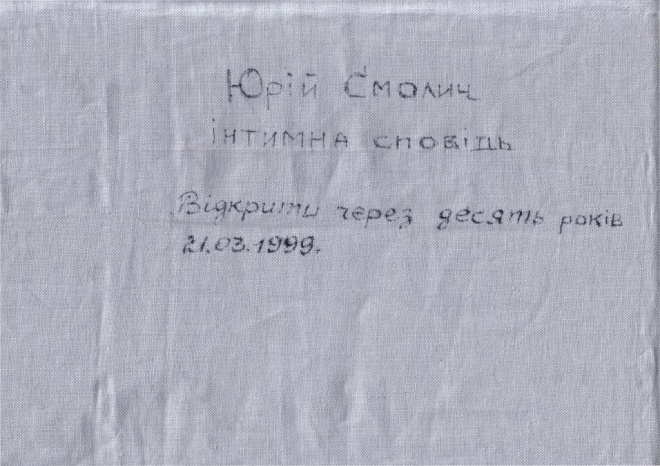 Юрій Смолич
інтимна сповідь
Відкрити через десять років
21.03.1999.